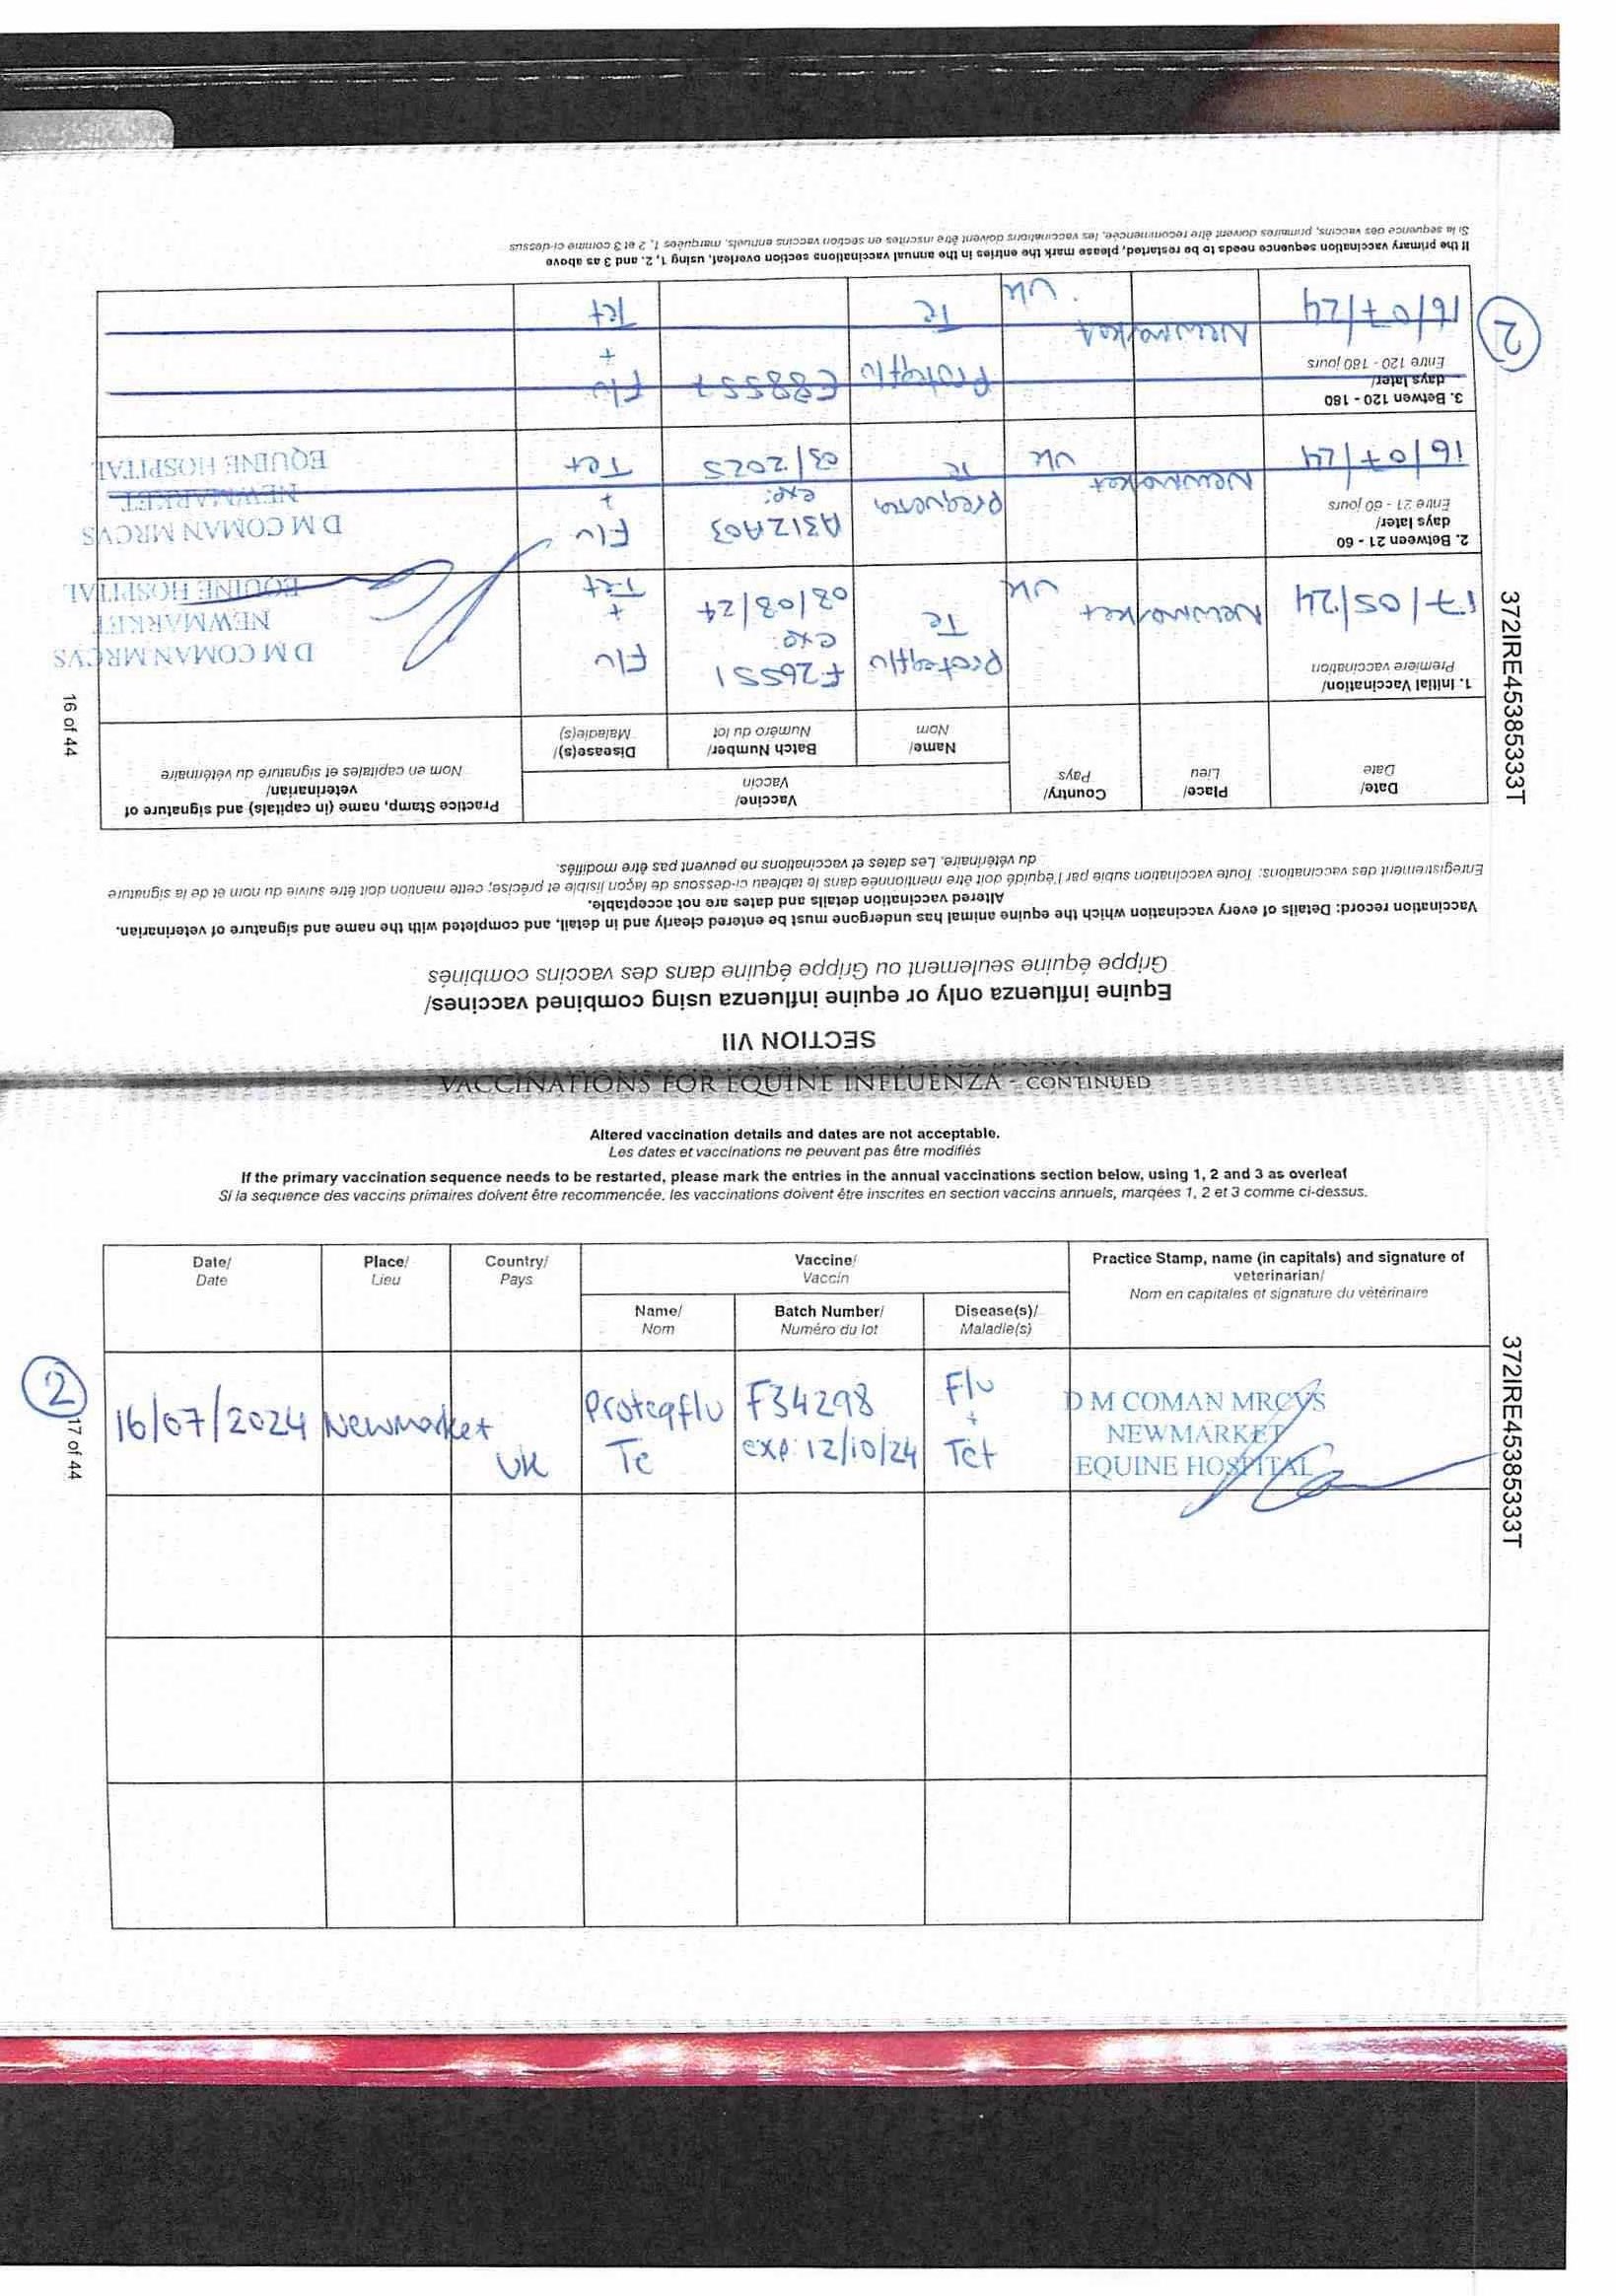 SECTION VII
Equine influenza only or equine influenza using combined vaccines/
Grippe équine seulement ou Grippe équine dans des vaccins combinés
Vaccination record: Details of every vaccination which the equine animal has undergone must be entered clearly and in detail, and completed with the name and signature of veterinarian.
Altered vaccination details and dates are not acceptable.
Enregistrement des vaccinations: Toute vaccination subie par l'équidé doit être mentionnée dans le tableau ci-dessous de façon lisible et précise; cette mention doit être suivie du nom et de la signature
du vétérinaire. Les dates et vaccinations ne peuvent pas être modifiés.
Date/
Date
Place/
Lieu
Country/
Pays
Vaccine/
Vaccin
Name/
Nom
Batch Number/
Numéro du lot
Disease(s)/
Maladie(s)
Practice Stamp, name (in capitals) and signature of
veterinarian/
Nom en capitales et signature du vétérinaire
1. Initial Vaccination/
Première vaccination
17/05/24
Newmarket
UK
Proteqflu
Te
F26551
exp:
Flu
+
Tet
D M COMAN MRCVS
NEWMARKET
EQUINE HOSPITAL
2. Between 21 - 60
days later/
Entre 21 - 60 jours
16/07/24
Newmarket
UK
Prequenza
Te
A312A03
exp:
03/2025
Flu
+
Tet
D M COMAN MRCVS
NEWMARKET
EQUINE HOSPITAL
3. Betwen 120 - 180
days later/
Entre 120 - 180 jours
16/07/24
Newmarket
UK
Proteqflu
Te
E88557
Flu
+
Tet
2
If the primary vaccination sequence needs to be restarted, please mark the entries in the annual vaccinations section overleaf, using 1, 2. and 3 as above
Si la sequence des vaccins, primaires doivent être recommencée, les vaccinations doivent être inscrites en section vaccins annuels, marquées 1, 2 et 3 comme ci-dessus
16 of 44
372IRE45385333T
VACCINATIONS FOR EQUINE INFLUENZA - CONTINUED
Altered vaccination details and dates are not acceptable.
Les dates et vaccinations ne peuvent pas être modifiés
If the primary vaccination sequence needs to be restarted, please mark the entries in the annual vaccinations section below, using 1, 2 and 3 as overleaf
Si la sequence des vaccins primaires doivent être recommencée. les vaccinations doivent être inscrites en section vaccins annuels, marqées 1, 2 et 3 comme ci-dessus.
Date/
Date
Place/
Lieu
Country/
Pays
Vaccine/
Vaccin
Name/
Nom
Batch Number/
Numéro du lot
Disease(s)/
Maladie(s)
Practice Stamp, name (in capitals) and signature of
veterinarian/
Nom en capitales et signature du vétérinaire
2
16/07/2024
Newmarket
UK
Proteqflu
Te
F34298
exp: 12/10/24
Flu
+
Tet
D M COMAN MRCVS
NEWMARKET
EQUINE HOSPITAL
17 of 44
372IRE45385333T